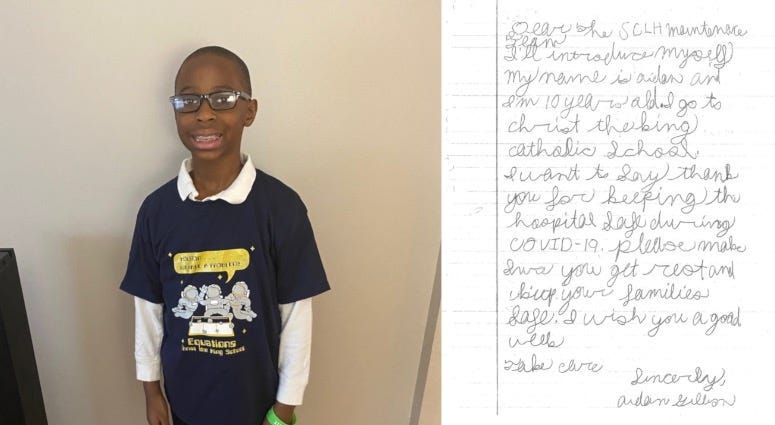 HAVE A PROBLEM?
Equations
Christ the King School
Dear the SCLH maintenance
Team
I'll introduce myself
my name is aidan and
I'm 10 years old. I go to
christ the king
catholic School.
I want to Say thank
you for keeping the
hospital Safe during
COVID-19. please make
Sure you get rest and
keep your families
Safe. I wish you a good
week
Take care
Sincerly,
aidan